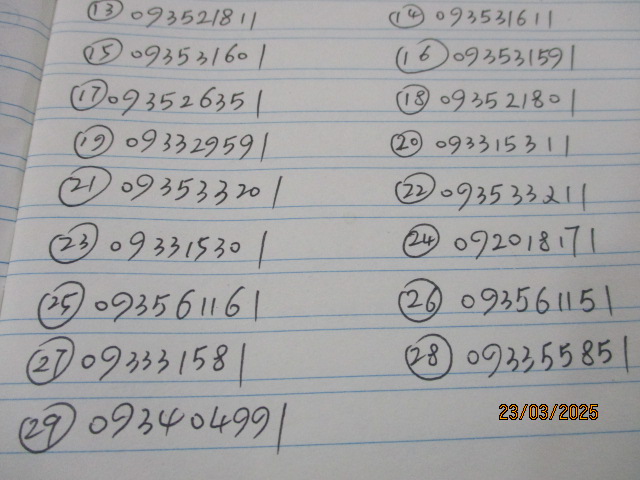 ⑬ 093521811 ⑭ 093531611
⑮ 093531601 ⑯ 093531591
⑰ 093526351 ⑱ 093521801
⑲ 093329591 ⑳ 093315311
㉑ 093533201 ㉒ 093533211
㉓ 093315301 ㉔ 092018171
㉕ 093561161 ㉖ 093561151
㉗ 093331581 ㉘ 093355851
㉙ 093404991
23/03/2025